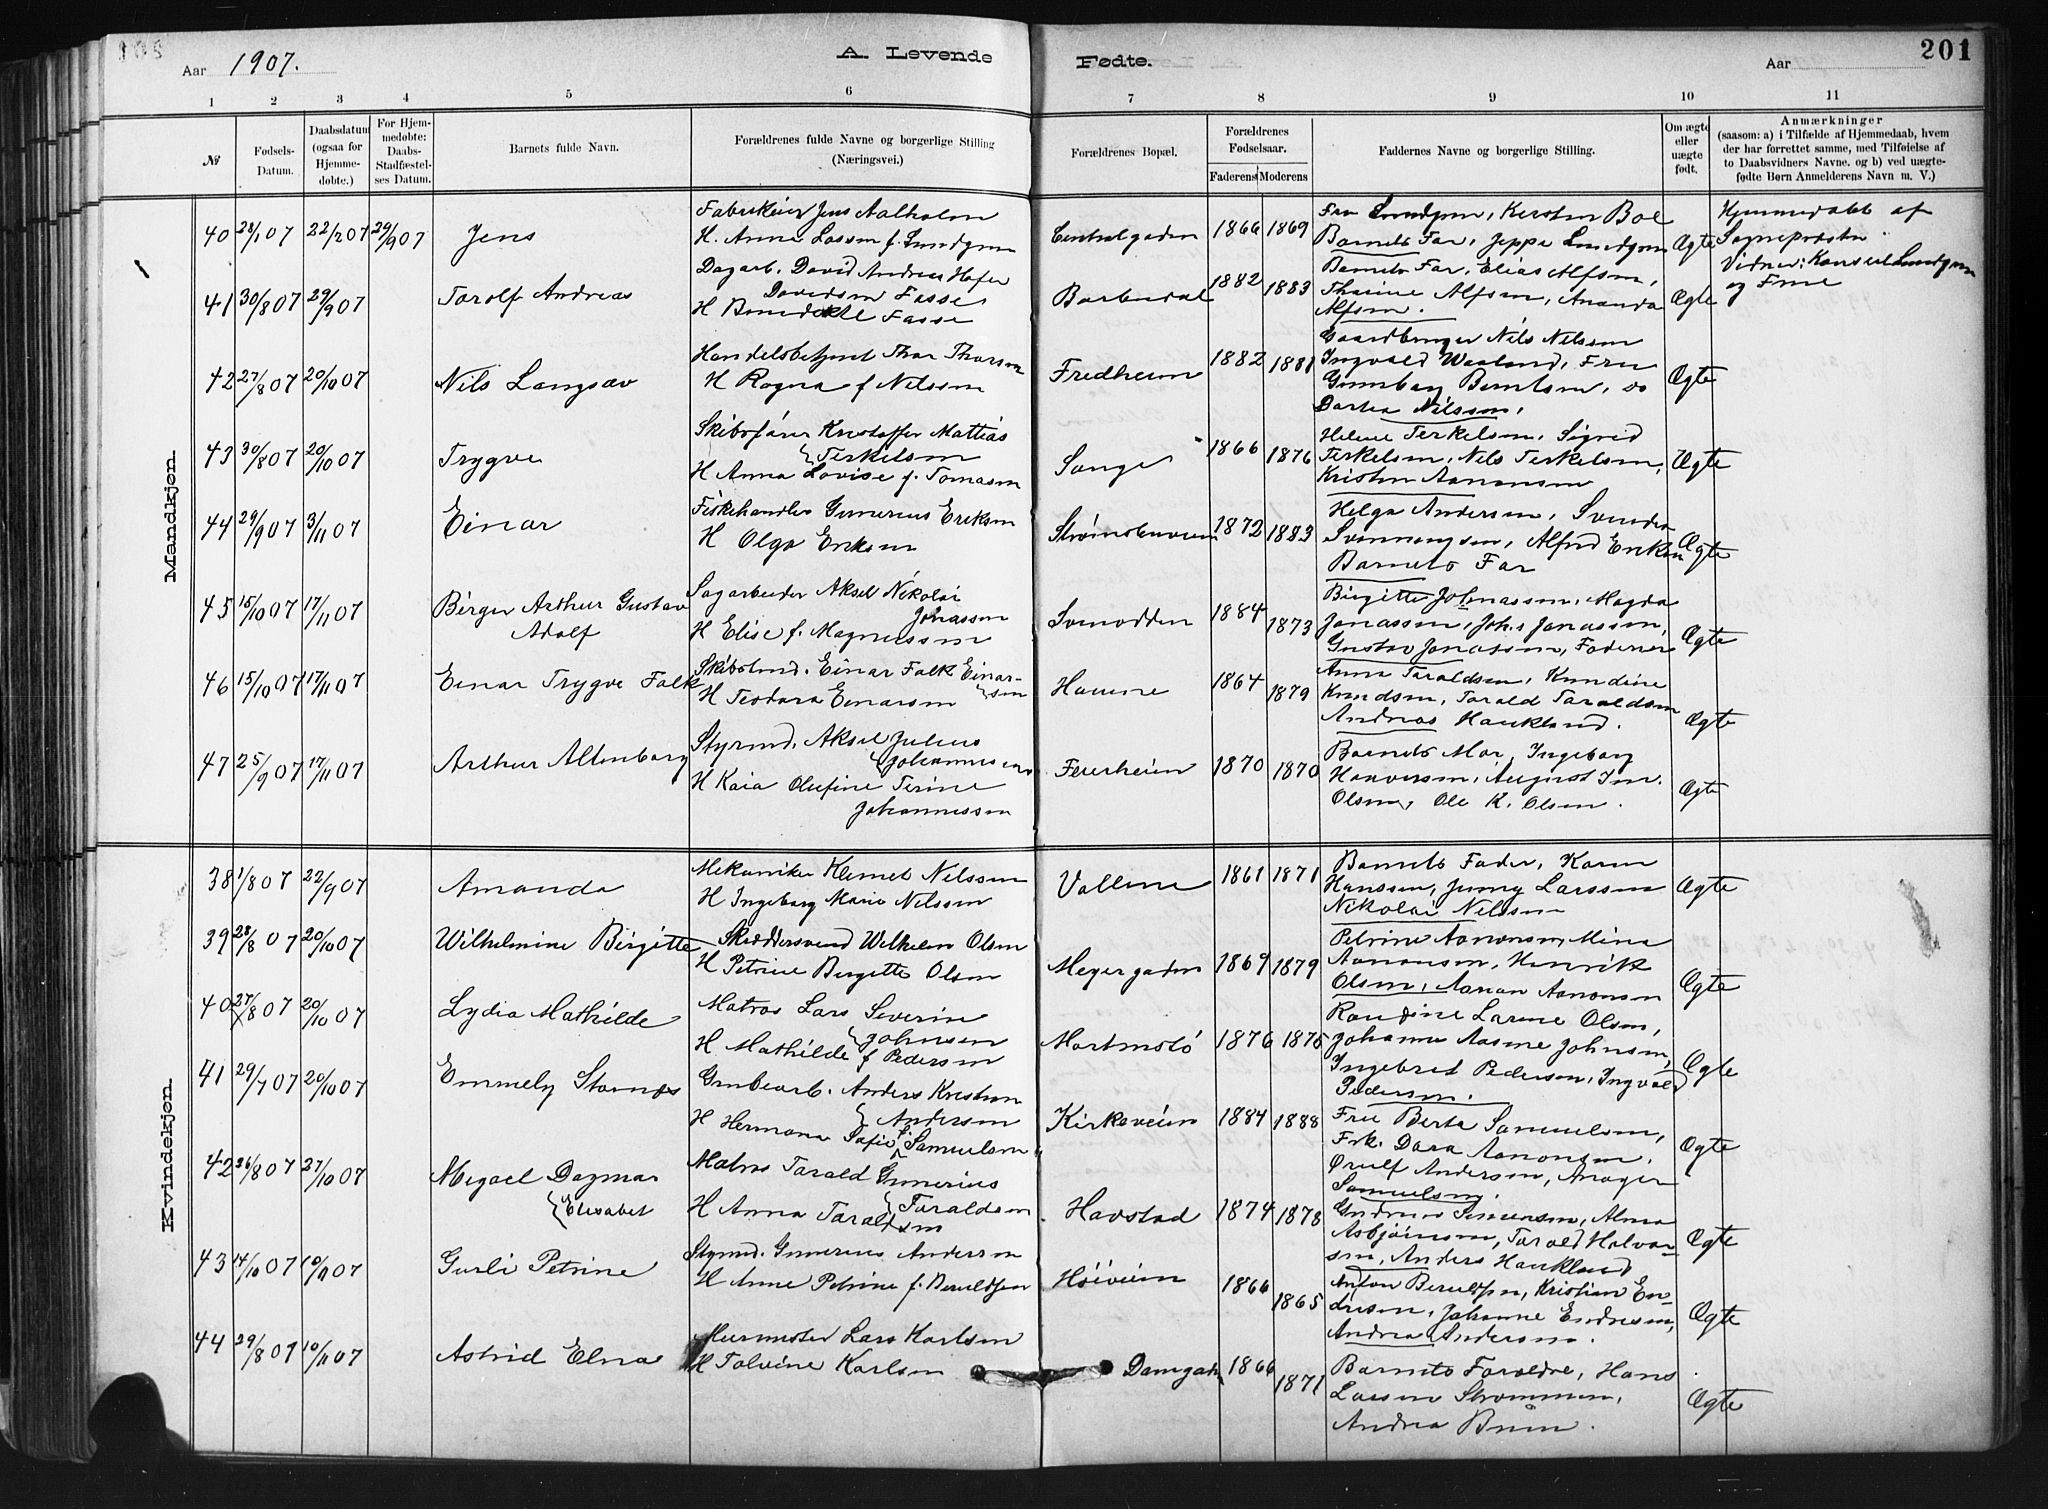 Aar 1907.
A. Levende
Fødte.
Aar
201
1 2 3 4 5 6 7 8 9 10 11
№
Fødsels-Datum.
Daabsdatum (ogsaa for Hjemmedøbte.)
For Hjemmedøbte: Daabs-Stadfæstelses Datum.
Barnets fulde Navn.
Forældrenes fulde Navne og borgerlige Stilling (Næringsvei.)
Forældrenes Bopæl.
Forældrenes Fødselsaar.
Faderens Moderens
Faddernes Navne og borgerlige Stilling.
Om ægte eller uægte født.
Anmærkninger
(saasom: a) i Tilfælde af Hjemmedaab, hvem der har forrettet samme, med Tilføielse af to Daabsvidners Navne. og b) ved uægtefødte Børn Anmelderens Navn m. V.)
Mandkjøn.
40 28/1 07 22/2 07 29/9 07 Jens
Fabrikeier Jens Aalholm
H. Anna Lassen f. Lundgren
Centralgaden 1866 1869
Fru Lundgren, Kirsten Boe
Barnets Far, Jeppe Lundgren
Ægte
Hjemmedøbt af
Sognepresten.
Vidner: Konsul Lundgren
og Frue
41 30/8 07 29/9 07 Torolf Andreas
Dagarb. David Andreas Hofer
Davidsen Fasse
H Benedikte Fasse
Barbudal 1882 1883
Barnets Far, Elias Alfsen,
Thrine Alfsen, Amanda
Alfsen.
Ægte
42 27/8 07 20/10 07 Nils Langsav
Handelsbetjent Thor Thorsen
H Ragna f Nilssen
Fredheim 1882 1881
Gaardbruger Nils Nilssen
Ingvald Waaland, Fru
Gunborg Berntsen, do
Dorthea Nilssen,
Ægte
43 30/8 07 20/10 07 Trygve
Skibsfører Kristoffer Mattias
Terkelsen
H Anna Lovise f. Tomassen
Songe 1866 1876
Helene Terkelsen, Sigrid
Terkelsen, Nils Terkelsen,
Kristen Aanonsen
Ægte
44 29/9 07 3/11 07 Einar
Fiskehandler Gunerius Eriksen
H Olga Eriksen
1872 1883
Helga Andersen,
Alfred Eriksen
Barnets Far
Ægte
45 15/10 07 17/11 07 Birger Arthur Gustav
Adolf
Sagarbeider Aksel Nikolai
Jonassen
H Elise f. Magnussen
Svenodden 1884 1873
Birgitte Johnassen, Magda
Jonassen, Johs Jonassen,
Gustav Jonassen, Faderen
Ægte
46 15/10 07 17/11 07 Einar Trygve Falk
Skibstmd. Einar Falk Einar-
sen
H Teodora Einarsen
Havene 1864 1879
Anna Taraldsen, Kundine
Knudsen, Tarald Taraldsen
Andreas Haukland.
Ægte
47 25/9 07 17/11 07 Arthur Altenborg
Styrmd. Aksel Julius
Johannessen
H Kaia Olufine Terine
Johannessen
Feierheien 1870 1870
Barnets Mor, Ingeborg
Halvorsen, August Im.
Olsen, Ole K. Olsen.
Ægte
Kvindekjøn.
38 1/8 07 22/9 07 Amanda
Mekaniker Klemet Nilssen
H Ingeborg Marie Nilssen
Vollene 1861 1871
Barnets Fader, Karen
Hanssen, Jenny Larssen
Nikolai Nilssen
Ægte
39 28/8 07 20/10 07 Wilhelmine Birgitte
Skræddersvend Wilhelm Olsen
H Petrine Birgitte Olsen
Meyergaden 1869 1879
Petrine Aanonsen, Mina
Aanonsen, Henrik
Olsen, Aanon Aanonsen
Ægte
40 27/8 07 20/10 07 Lydia Mathilde
Matros Lars Severin
Johnsen
H Mathilde f Pedersen
Mortmoló 1876 1875
Randine Larine Olsen,
Johanne Aasine Johnsen,
Ingebret Pedersen, Ingvald
Pedersen.
Ægte
41 29/7 07 20/10 07 Emmely
Grubearb. Anders Kristian
Andersen
H Hermana Sofie f. Samuelsen
Kirkeveien 1884 1888
Fru Berta Samuelsen,
Frk. Dora Aanonsen,
Ørulf Andersen, Anager
Samuelsen.
Ægte
42 26/8 07 27/10 07 Migael Dagmar
Elisabet
Matros Tarald Gunerius
Taraldsen
H Anna Taraldsen
Havstad 1874 1878
Gudrun Simensen, Alma
Asbjørnsen, Tarald Halvor-
sen, Anders Haukland
Ægte
43 14/10 07 10/11 07 Gurli Petrine
Styrmd. Gunerius Andersen
H Anne Petrine f. Beruldsen
Høiveien 1866 1865
Anton Beruldsen, Kristian En-
dresen, Johanne Endresen,
Andrea Andersen.
Ægte
44 29/8 07 10/11 07 Astrid Elna
Murmester Lars Karlsen
H Tolvine Karlsen
Damgaden 1866 1871
Barnets Forældre, Hans
Larsen Strømmen,
Andrea Bruun.
Ægte